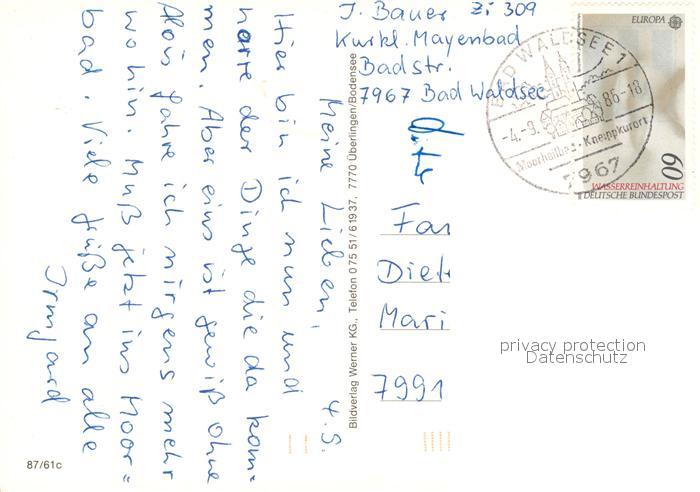 J. Bauer Zi 309
Kurkl. Mayenbad
Badstr.
7967 Bad Waldsee
BAD WALDSEE 1
-4.-9. 86-18
Moorheilbad - Kneippkurort
7967
EUROPA
60
WASSERREINHALTUNG
DEUTSCHE BUNDESPOST
4.9.
Meine Lieben,
Hier bin ich nun und
harre der Dinge die da kom-
men. Aber eins ist gewiß ohne
Alois fahre ich nirgens mehr
wo hin. Muß jetzt ins Moor=
bad. Viele Grüße an alle
Irmgard
Bildverlag Werner KG., Telefon 0 75 51/6 19 37, 7770 Überlingen/Bodensee
Fam
Diet
Mari
7991
privacy protection
Datenschutz
87/61c